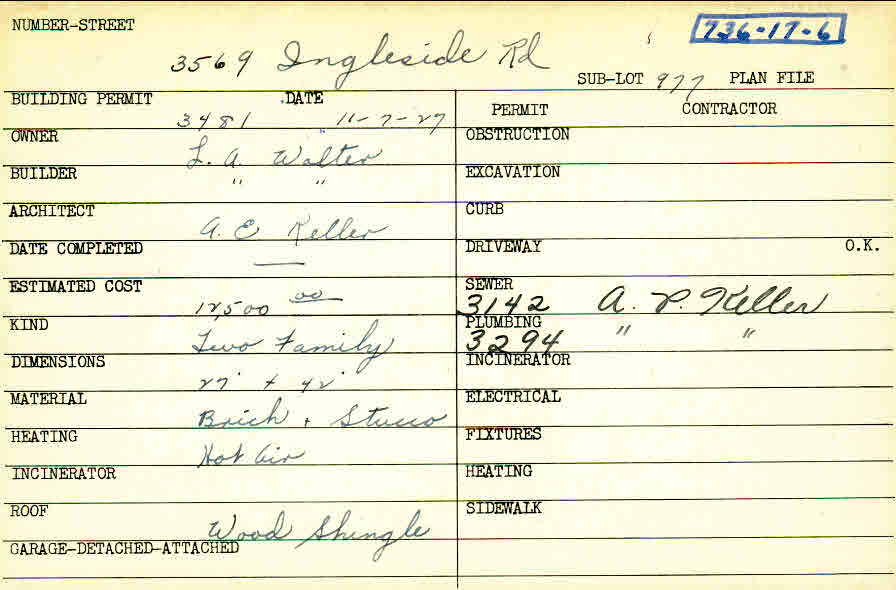 NUMBER-STREET
736-17-6
3569 Ingleside Rd
SUB-LOT 977 PLAN FILE
BUILDING PERMIT DATE
3481 11-7-27
PERMIT CONTRACTOR
OWNER
L. A. Walter
OBSTRUCTION
BUILDER
" "
EXCAVATION
ARCHITECT
A. E. Keller
CURB
DATE COMPLETED
—
DRIVEWAY O.K.
ESTIMATED COST
12500 00
SEWER
3142 A. P. Keller
KIND
Two Family
PLUMBING
3294 " "
DIMENSIONS
27' + 42'
INCINERATOR
MATERIAL
Brick + Stucco
ELECTRICAL
HEATING
Hot Air
FIXTURES
INCINERATOR
HEATING
ROOF
Wood Shingle
SIDEWALK
GARAGE-DETACHED-ATTACHED